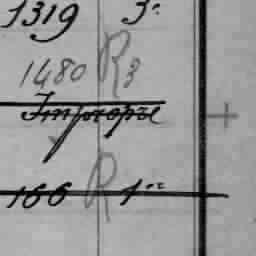 1319 3e
1480 R3
Impropre
166 R 1re